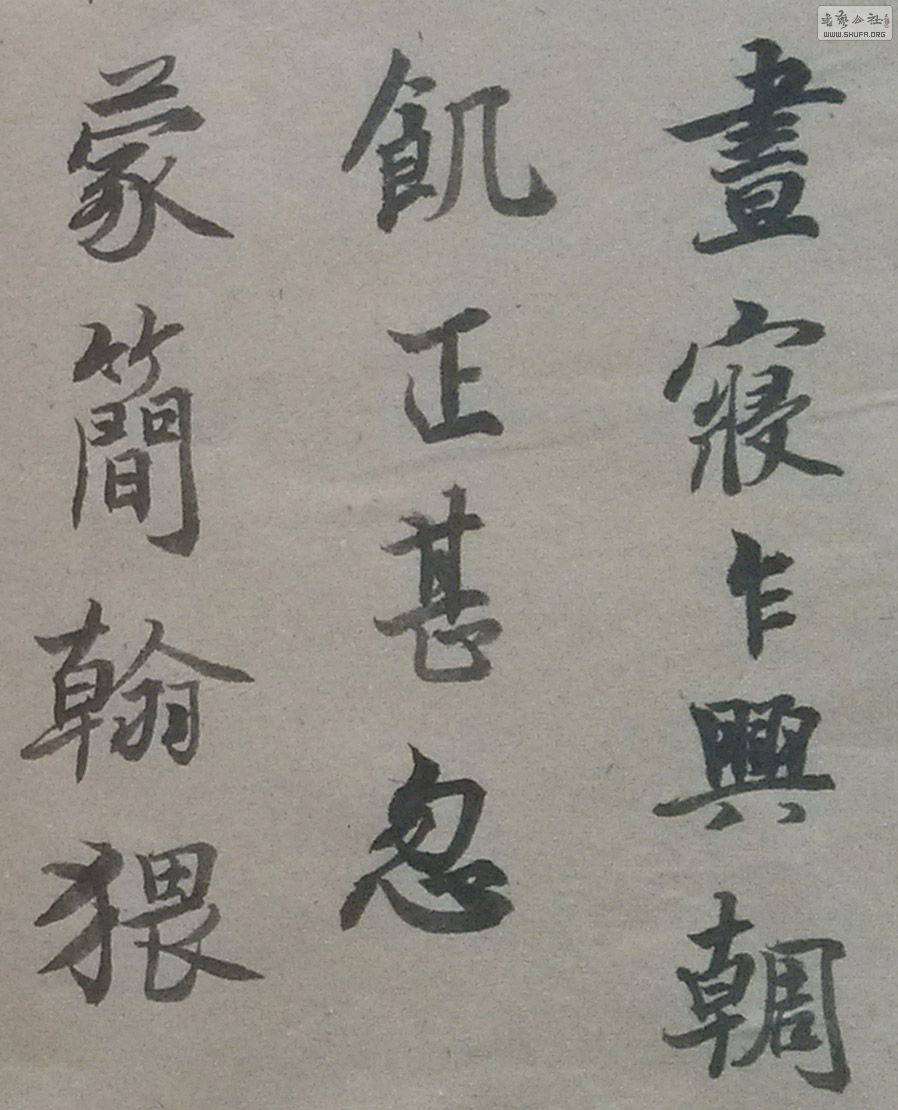 晝寢乍興輖
飢正甚忽
蒙簡翰猥
書藝公社
WWW.SHUFA.ORG